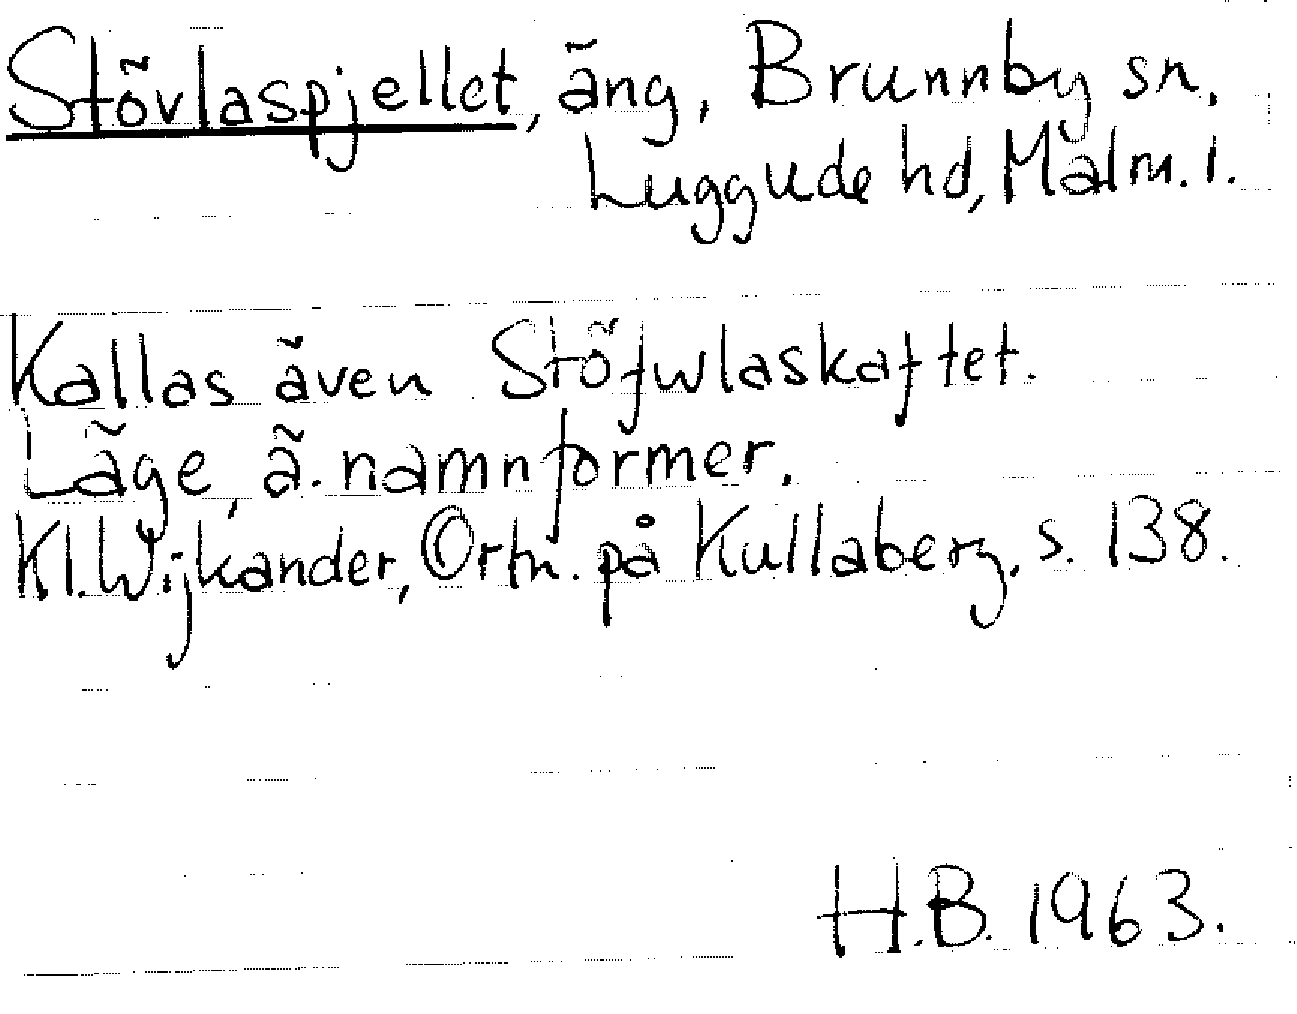 Stövlaspjellet, äng, Brunnby sn,
Luggude hd, Malm. l.
Kallas även Stöfwlaskaftet.
Läge, ä. namnformer.
Kl. Wijkander, Ortn. på Kullaberg, s. 138.
H.B. 1963.